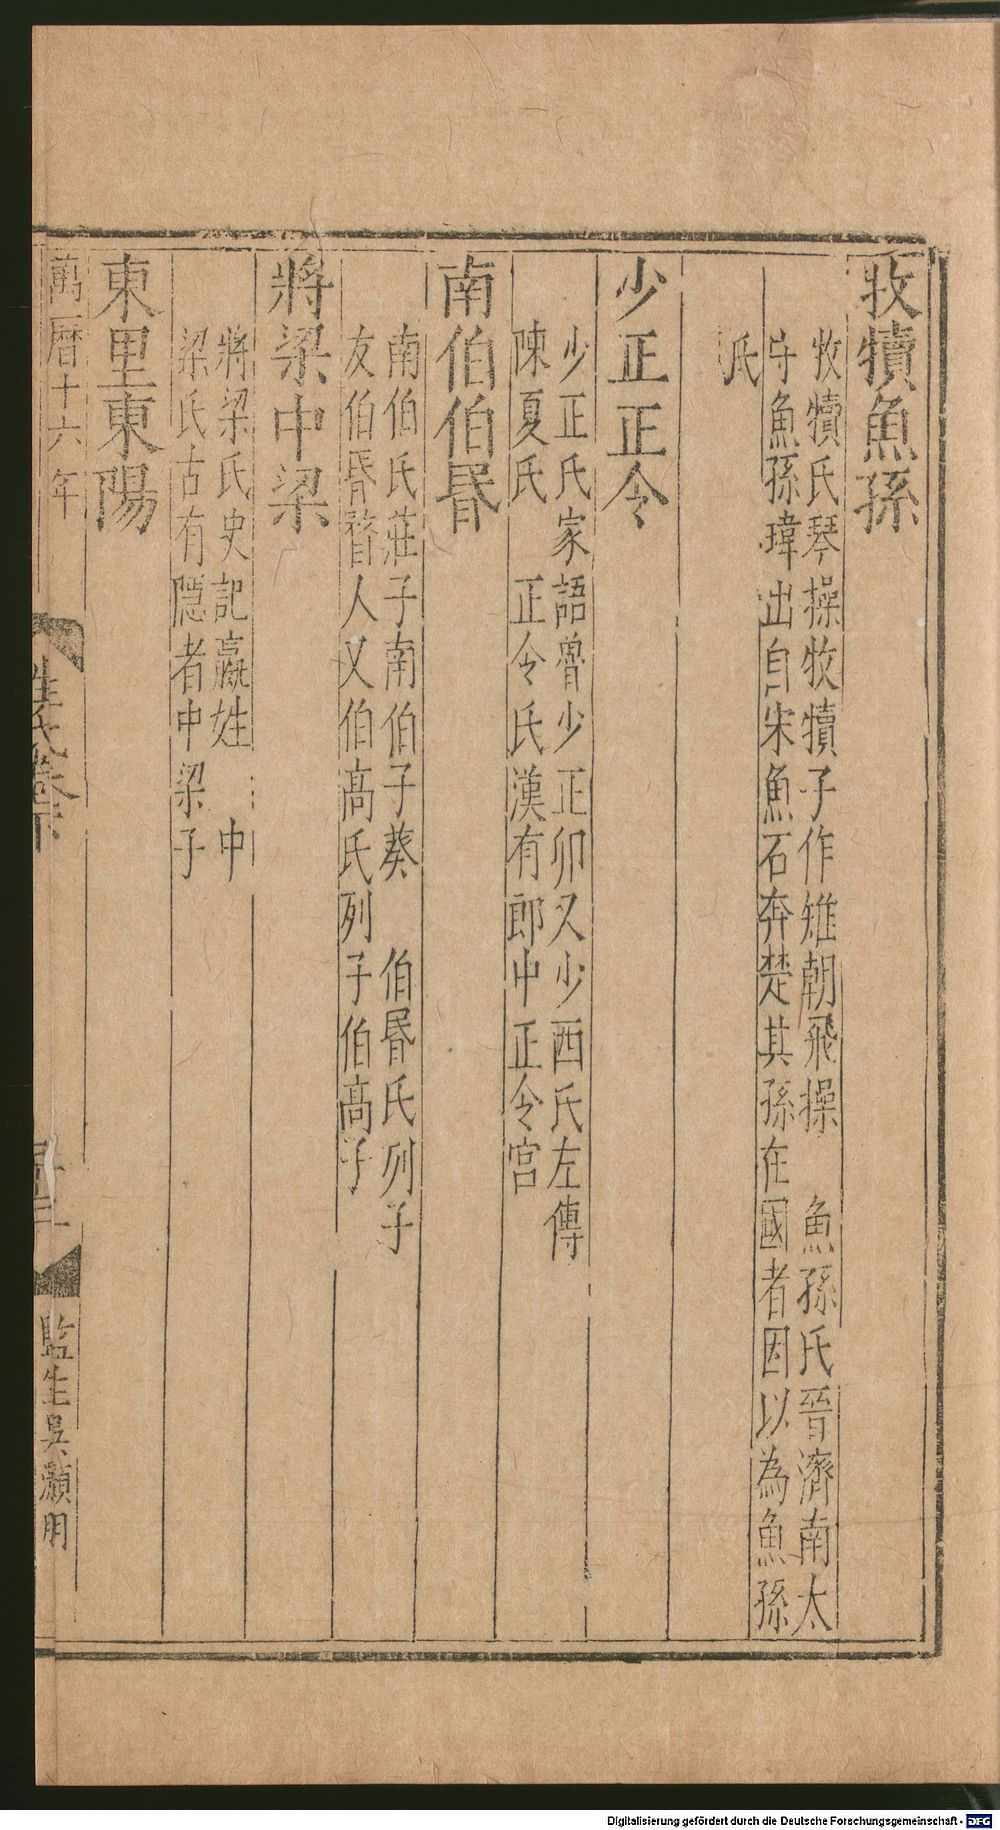 牧犢魚孫
牧犢氏琴操牧犢子作雉朝飛操 魚孫氏晉濟南太
守魚孫瑋出自宋魚石奔楚其孫在國者因以為魚孫
氏
少正正令
少正氏家語魯少正卯又少西氏左傳
陳夏氏 正令氏漢有郎中正令宮
南伯伯昬
南伯氏莊子南伯子葵 伯昬氏列子
友伯昬瞀人又伯高氏列子伯高子
將梁中梁
將梁氏史記嬴姓 中
梁氏古有隠者中梁子
東里東陽
萬曆十六年
姓氏卷下
監生吳灝明
Digitalisierung gefördert durch die Deutsche Forschungsgemeinschaft - DFG